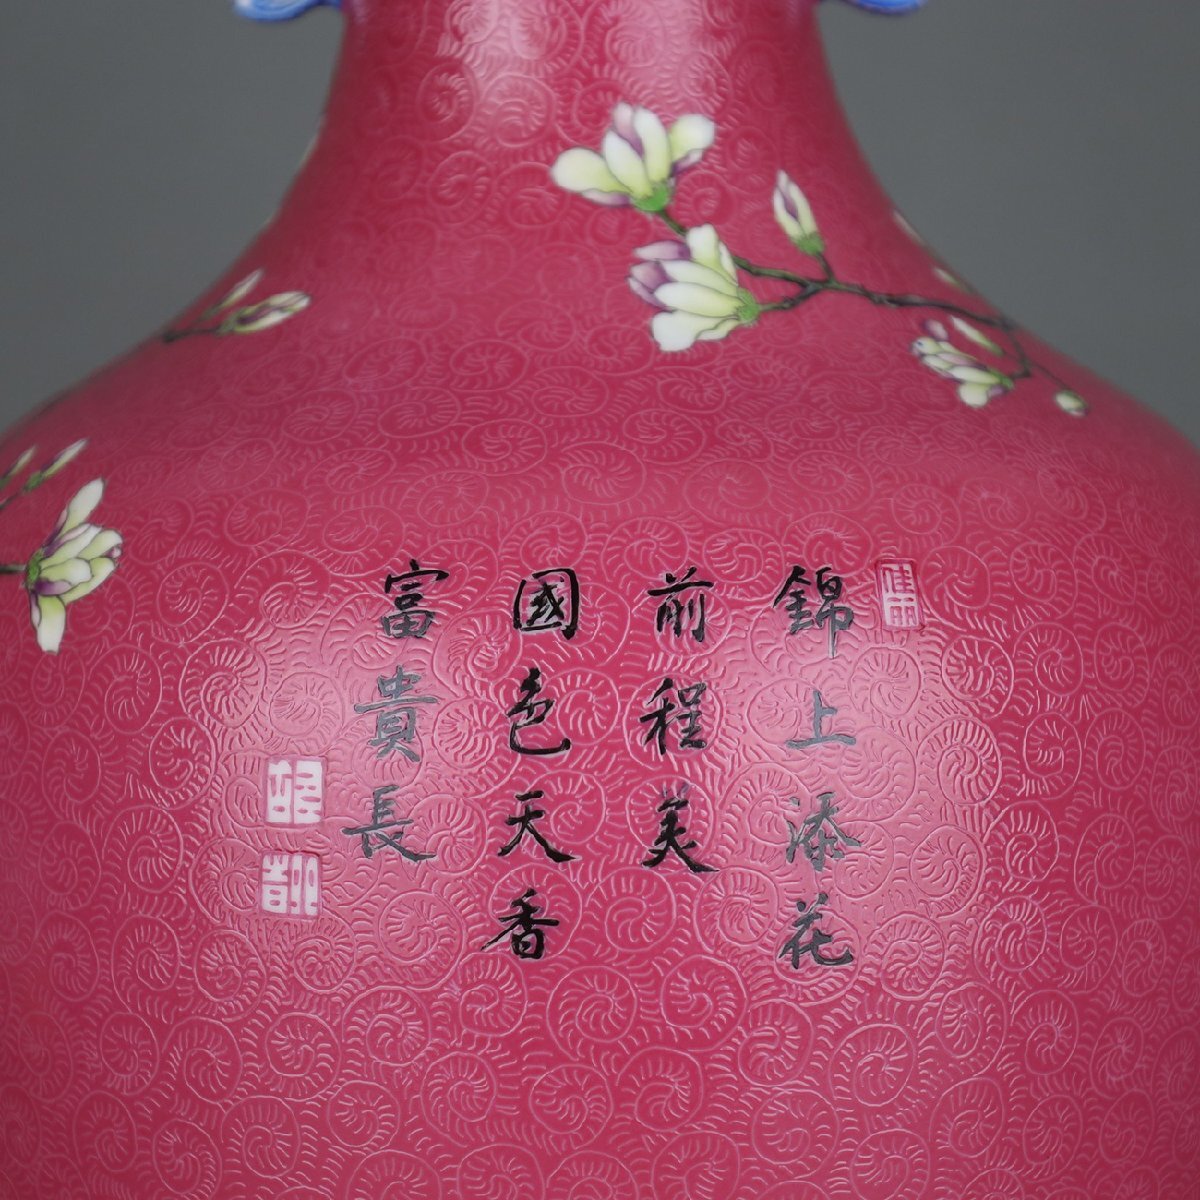 錦上添花
前程美
國色天香
富貴長